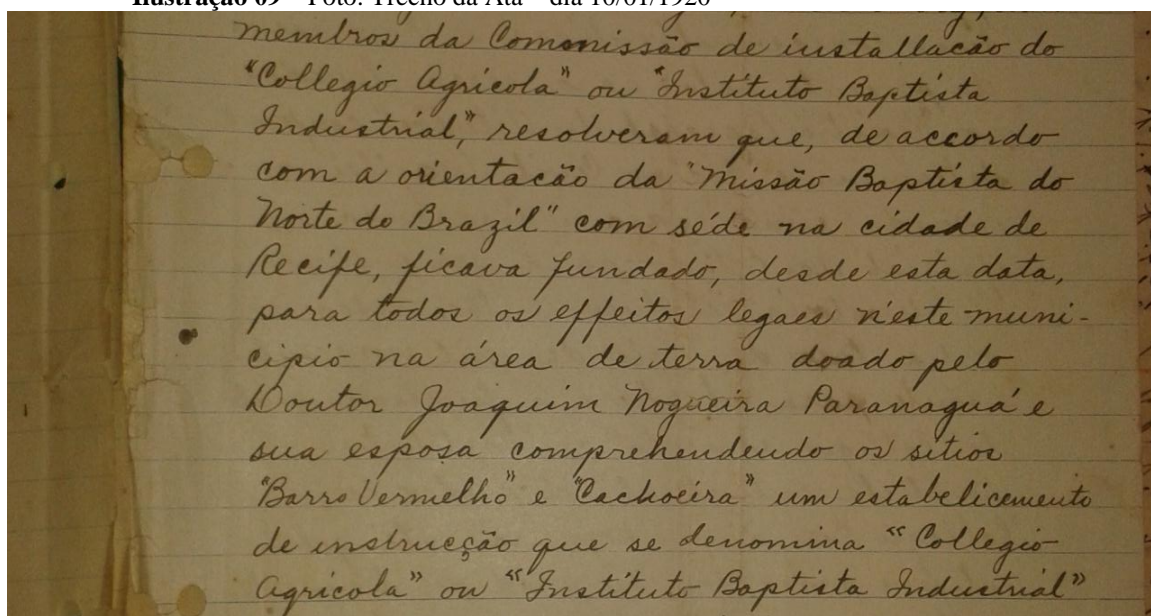 Ilustração 09 – Foto: Trecho da Ata – dia 10/01/1920
membros da Commissão de installacão do
"Collegio Agricola" ou "Instituto Baptista
Industrial", resolveram que, de accordo
com a orientacão da "Missão Baptista do
Norte do Brazil" com séde na cidade de
Recife, ficava fundado, desde esta data,
para todos os effeitos legaes n'este muni-
cipio na área de terra doado pelo
Doutor Joaquim Nogueira Paranaguá e
sua esposa comprehendendo os sitios
"Barro Vermelho" e "Cachoeira" um estabelicemento
de instrucção que se denomina "Collegio
Agricola" ou "Instituto Baptista Industrial"